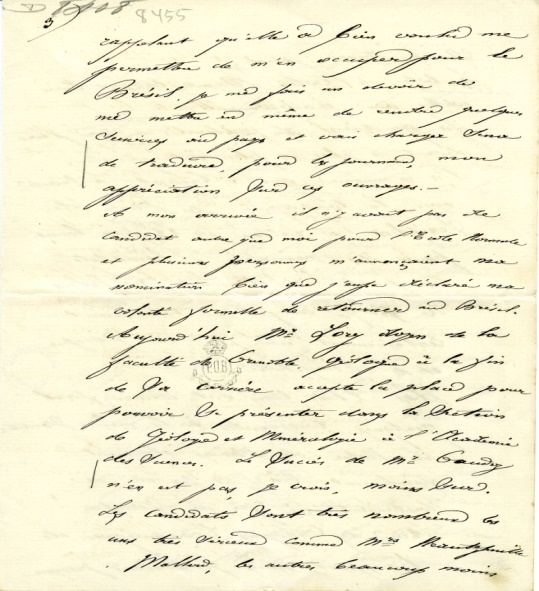 D 8408 8455
3
rappelant qu'elle a bien voulu me
permettre de m'en occuper pour le
Brésil. je me fais un devoir de
me mettre en même de rendre quelques
services au pays et vais charger
de traduire, pour les journaux, mon
appréciation sur ces ouvrages. —
A mon arrivée il n'y avait pas de
candidat autre que moi pour l'Ecole Normale
et plusieurs personnes m'annonçaient ma
nomination bien que j'eusse déclaré ma
volonté formelle de retourner au Brésil.
Aujourd'hui Mr. Lory doyen de la
faculté de Grenoble, géologue à la fin
de sa carrière accepte la place pour
pouvoir se présenter dans la Section
de Géologie et Minéralogie à l'Académie
des Sciences. Le succès de Mr. Gaudry
n'en est pas, je crois, moins sur.
Les candidats sont très nombreux les
uns très sérieux comme Mrs Hautefeuille
, Mallard, les autres beaucoup moins